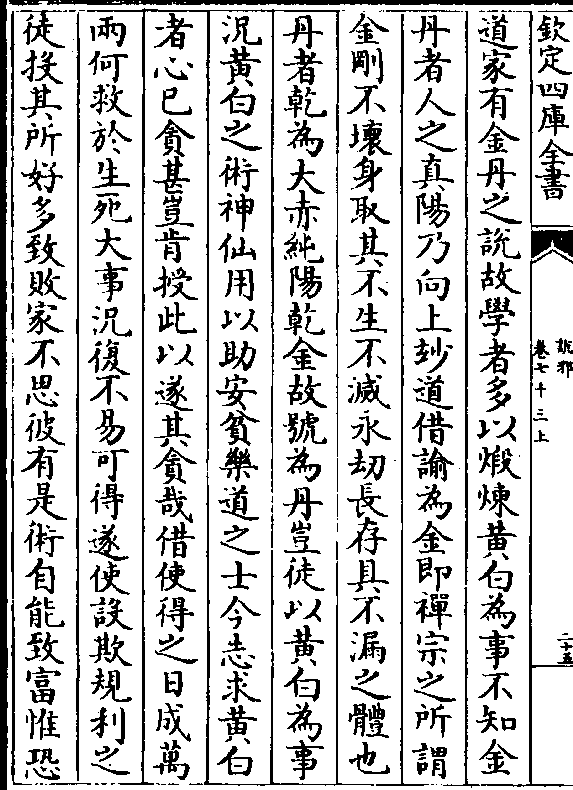 欽定四庫全書
說郛
卷七十三上
二十五
道家有金丹之說故學者多以煅煉黃白為事不知金
丹者人之真陽乃向上玅道借諭為金即禪宗之所謂
金剛不壞身取其不生不滅永劫長存具不漏之體也
丹者乾為大赤純陽乾金故號為丹豈徒以黃白為事
況黃白之術神仙用以助安貧樂道之士今志求黃白
者心已貪甚豈肯授此以遂其貪哉借使得之日成萬
兩何救於生死大事況復不易可得遂使設欺規利之
徒投其所好多致敗家不思彼有是術自能致富惟恐